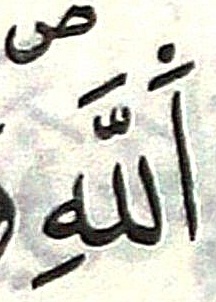 ص
اَللَّهِ